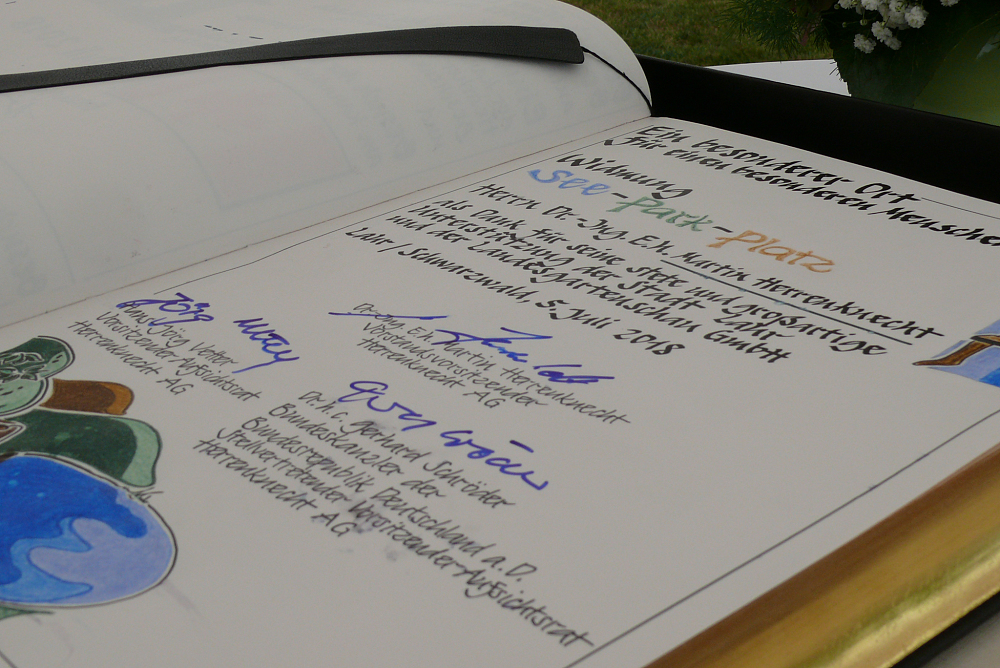 Ein besonderer Ort
für einen besonderen Menschen
Widmung
See-Park-Platz
Herrn Dr.-Ing. E.h. Martin Herrenknecht
als Dank für seine stete und großartige
Unterstützung der Stadt Lahr
und der Landesgartenschau GmbH
Lahr / Schwarzwald, 5. Juli 2018
Dr.-Ing. E.h. Martin Herrenknecht
Vorstandsvorsitzender
Herrenknecht AG
Hans-Jörg Vetter
Vorsitzender Aufsichtsrat
Herrenknecht AG
Dr. h.c. Gerhard Schröder
Bundeskanzler der
Bundesrepublik Deutschland a.D.
Stellvertretender Vorsitzender Aufsichtsrat
Herrenknecht AG